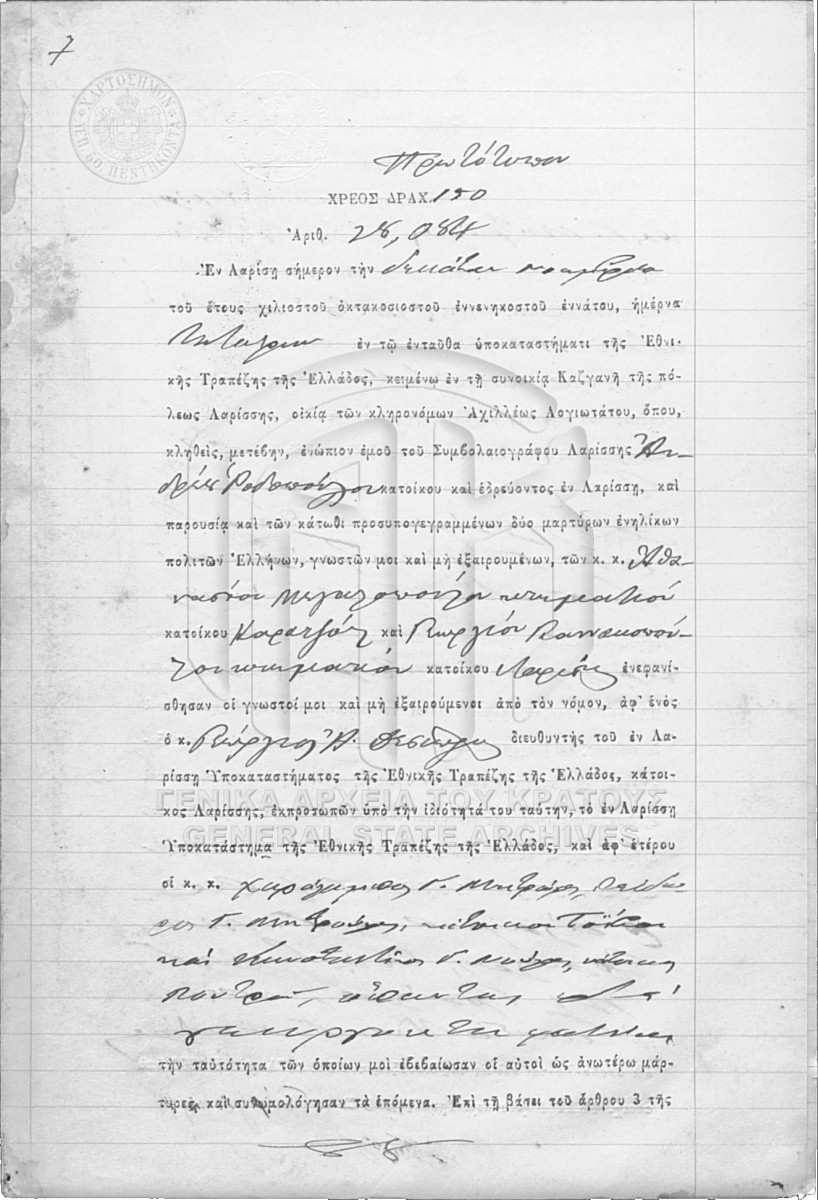 7
ΧΑΡΤΟΣΗΜΟΝ ΛΕΠ. 50. ΠΕΝΤΗΚΟΝΤΑ
Πρωτότυπον
ΧΡΕΟΣ ΔΡΑΧ. 150
Ἀριθ. 28,084
Ἐν Λαρίσῃ σήμερον τὴν δεκάτην
τοῦ ἔτους χιλιοστοῦ ὀκτακοσιοστοῦ ἐννενηκοστοῦ ἐννάτου, ἡμέρᾳ
Τετάρτην ἐν τῷ ἐνταῦθα ὑποκαταστήματι τῆς Ἐθνι-
κῆς Τραπέζης τῆς Ἑλλάδος, κειμένῳ ἐν τῇ συνοικίᾳ Καζγανῆ τῆς πό-
λεως Λαρίσσης, οἰκίᾳ τῶν κληρονόμων Ἀχιλλέως Λογιωτάτου, ὅπου,
κληθεὶς, μετέβην, ἐνώπιον ἐμοῦ τοῦ Συμβολαιογράφου Λαρίσσης Ἀν-
δρέου Ῥοδοπούλου κατοίκου καὶ ἑδρεύοντος ἐν Λαρίσσῃ, καὶ
παρουσίᾳ καὶ τῶν κάτωθι προσυπογεγραμμένων δύο μαρτύρων ἐνηλίκων
πολιτῶν Ἑλλήνων, γνωστῶν μοι καὶ μὴ ἐξαιρουμένων, τῶν κ. κ. Ἀθα-
νασίου Μεγαλοπούλου κτηματίου
κατοίκου Καρατζόλ καὶ Γεωργίου Γιαννακοπού-
λου κτηματίου κατοίκου Λαρίσης ἐνεφανί-
σθησαν οἱ γνωστοί μοι καὶ μὴ ἐξαιρούμενοι ἀπὸ τὸν νόμον, ἀφ' ἑνὸς
ὁ κ. Γεώργιος Ἀ. διευθυντὴς τοῦ ἐν Λα-
ρίσσῃ Ὑποκαταστήματος τῆς Ἐθνικῆς Τραπέζης τῆς Ἑλλάδος, κάτοι-
κος Λαρίσσης, ἐκπροσωπῶν ὑπὸ τὴν ἰδιότητά του ταύτην, τὸ ἐν Λαρίσσῃ
Ὑποκατάστημα τῆς Ἐθνικῆς Τραπέζης τῆς Ἑλλάδος, καὶ ἀφ' ἑτέρου
οἱ κ. κ. Χαράλαμπος Γ.
Γ. κάτοικοι
καὶ Κωνσταντῖνος Γ. κάτοικος
ἅπαντες
γεωργοκτηματίαι
τὴν ταὐτότητα τῶν ὁποίων μοὶ ἐβεβαίωσαν οἱ αὐτοὶ ὡς ἀνωτέρω μάρ-
τυρες καὶ συνωμολόγησαν τὰ ἑπόμενα. Ἐπὶ τῇ βάσει τοῦ ἄρθρου 3 τῆς
ΓΕΝΙΚΑ ΑΡΧΕΙΑ ΤΟΥ ΚΡΑΤΟΥΣ
GENERAL STATE ARCHIVES